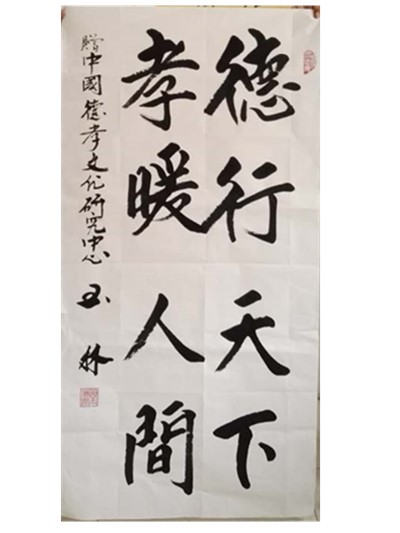 德行天下
孝暖人間
赠中國德孝文化研究中心 玉林